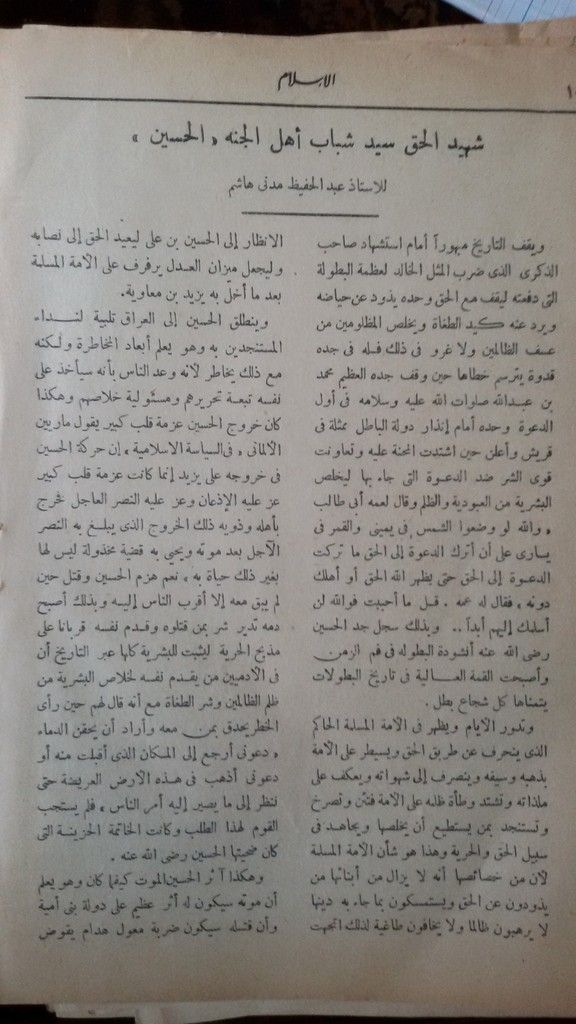 الإسلام
شهيد الحق سيد شباب أهل الجنه « الحسين »
للاستاذ عبد الحفيظ مدنى هاشم
ويقف التاريخ مبهوراً أمام استشهاد صاحب
الذكرى الذى ضرب المثل الخالد لعظمة البطولة
التى دفعته ليقف مع الحق وحده يذود عن حياضه
ويرد عنه كيد الطغاة ويخلص المظلومين من
عسف الظالمين ولا غرو فى ذلك فله فى جده
قدوة يترسم خطاها حين وقف جده العظيم محمد
بن عبدالله صلوات الله عليه وسلامه فى أول
الدعوة وحده أمام إنذار دولة الباطل ممثلة فى
قريش وأعلن حين اشتدت المحنة عليه وتعاونت
قوى الشر ضد الدعوة التى جاء بها ليخلص
البشرية من العبودية والظلم وقال لعمه أبى طالب
« والله لو وضعوا الشمس فى يمينى والقمر فى
يسارى على أن أترك الدعوة إلى الحق ما تركت
الدعوة إلى الحق حتى يظهر الله الحق أو أهلك
دونه » فقال له عمه . قل ما أحببت فوالله لن
أسلمك إليهم أبداً .. وبذلك سجل جد الحسين
رضى الله عنه أنشودة البطوله فى فم الزمن
وأصبحت القمة العالية فى تاريخ البطولات
يتمناها كل شجاع بطل .
وتدور الايام ويظهر فى الأمة المسلمة الحاكم
الذى ينحرف عن طريق الحق ويسيطر على الأمة
بذهبه وسيفه وينصرف إلى شهواته ويعكف على
ملذاته وتشتد وطأة ظله على الأمة فتئن وتصرخ
وتستنجد بمن يستطيع أن يخلصها ويجاهد فى
سبيل الحق والحرية وهذا هو شأن الأمة المسلمة
لأن من خصائصها أنه لا يزال من أبنائها من
يذودون عن الحق ويستمسكون بما جاء به دينها
لا يرهبون ظالما ولا يخافون طاغية لذلك اتجهت
الانظار إلى الحسين بن على ليعيد الحق إلى نصابه
وليجعل ميزان العدل يرفرف على الأمة المسلمة
بعد ما أخل به يزيد بن معاوية.
وينطلق الحسين إلى العراق تلبية لنداء
المستنجدين به وهو يعلم أبعاد المخاطرة ولكنه
مع ذلك يخاطر لأنه وعد الناس بأنه سيأخذ على
نفسه تبعة تحريرهم ومسئولية خلاصهم وهكذا
كان خروج الحسين عزمة قلب كبير يقول ماريين
الألمانى « فى السياسة الاسلامية » إن حركة الحسين
فى خروجه على يزيد إنما كانت عزمة قلب كبير
عز عليه الإذعان وعز عليه النصر العاجل فخرج
بأهله وذويه ذلك الخروج الذى يبلغ به النصر
الآجل بعد موته ويحيى به قضية مخذولة ليس لها
بغير ذلك حياة به » نعم هزم الحسين وقتل حين
لم يبق معه إلا أقرب الناس إليه وبذلك أصبح
دمه نذير شر بمن قتلوه وقدم نفسه قربانا على
مذبح الحرية ليثبت للبشرية كلها عبر التاريخ أن
فى الآدميين من يقدم نفسه لخلاص البشرية من
ظلم الظالمين وشر الطغاة مع أنه قال لهم حين رأى
الخطر يحدق بمن معه وأراد أن يحقن الدماء
« دعونى أرجع إلى المكان الذى أقبلت منه أو
دعونى أذهب فى هذه الأرض العريضة حتى
ننظر إلى ما يصير إليه أمر الناس » فلم يستجب
القوم لهذا الطلب وكانت الخاتمة الحزينة التى
كان ضحيتها الحسين رضى الله عنه .
وهكذا آثر الحسين الموت كيفما كان وهو يعلم
أن موته سيكون له أثر عظيم على دولة بنى أمية
وأن قتله سيكون ضربة معول هدام يقوض